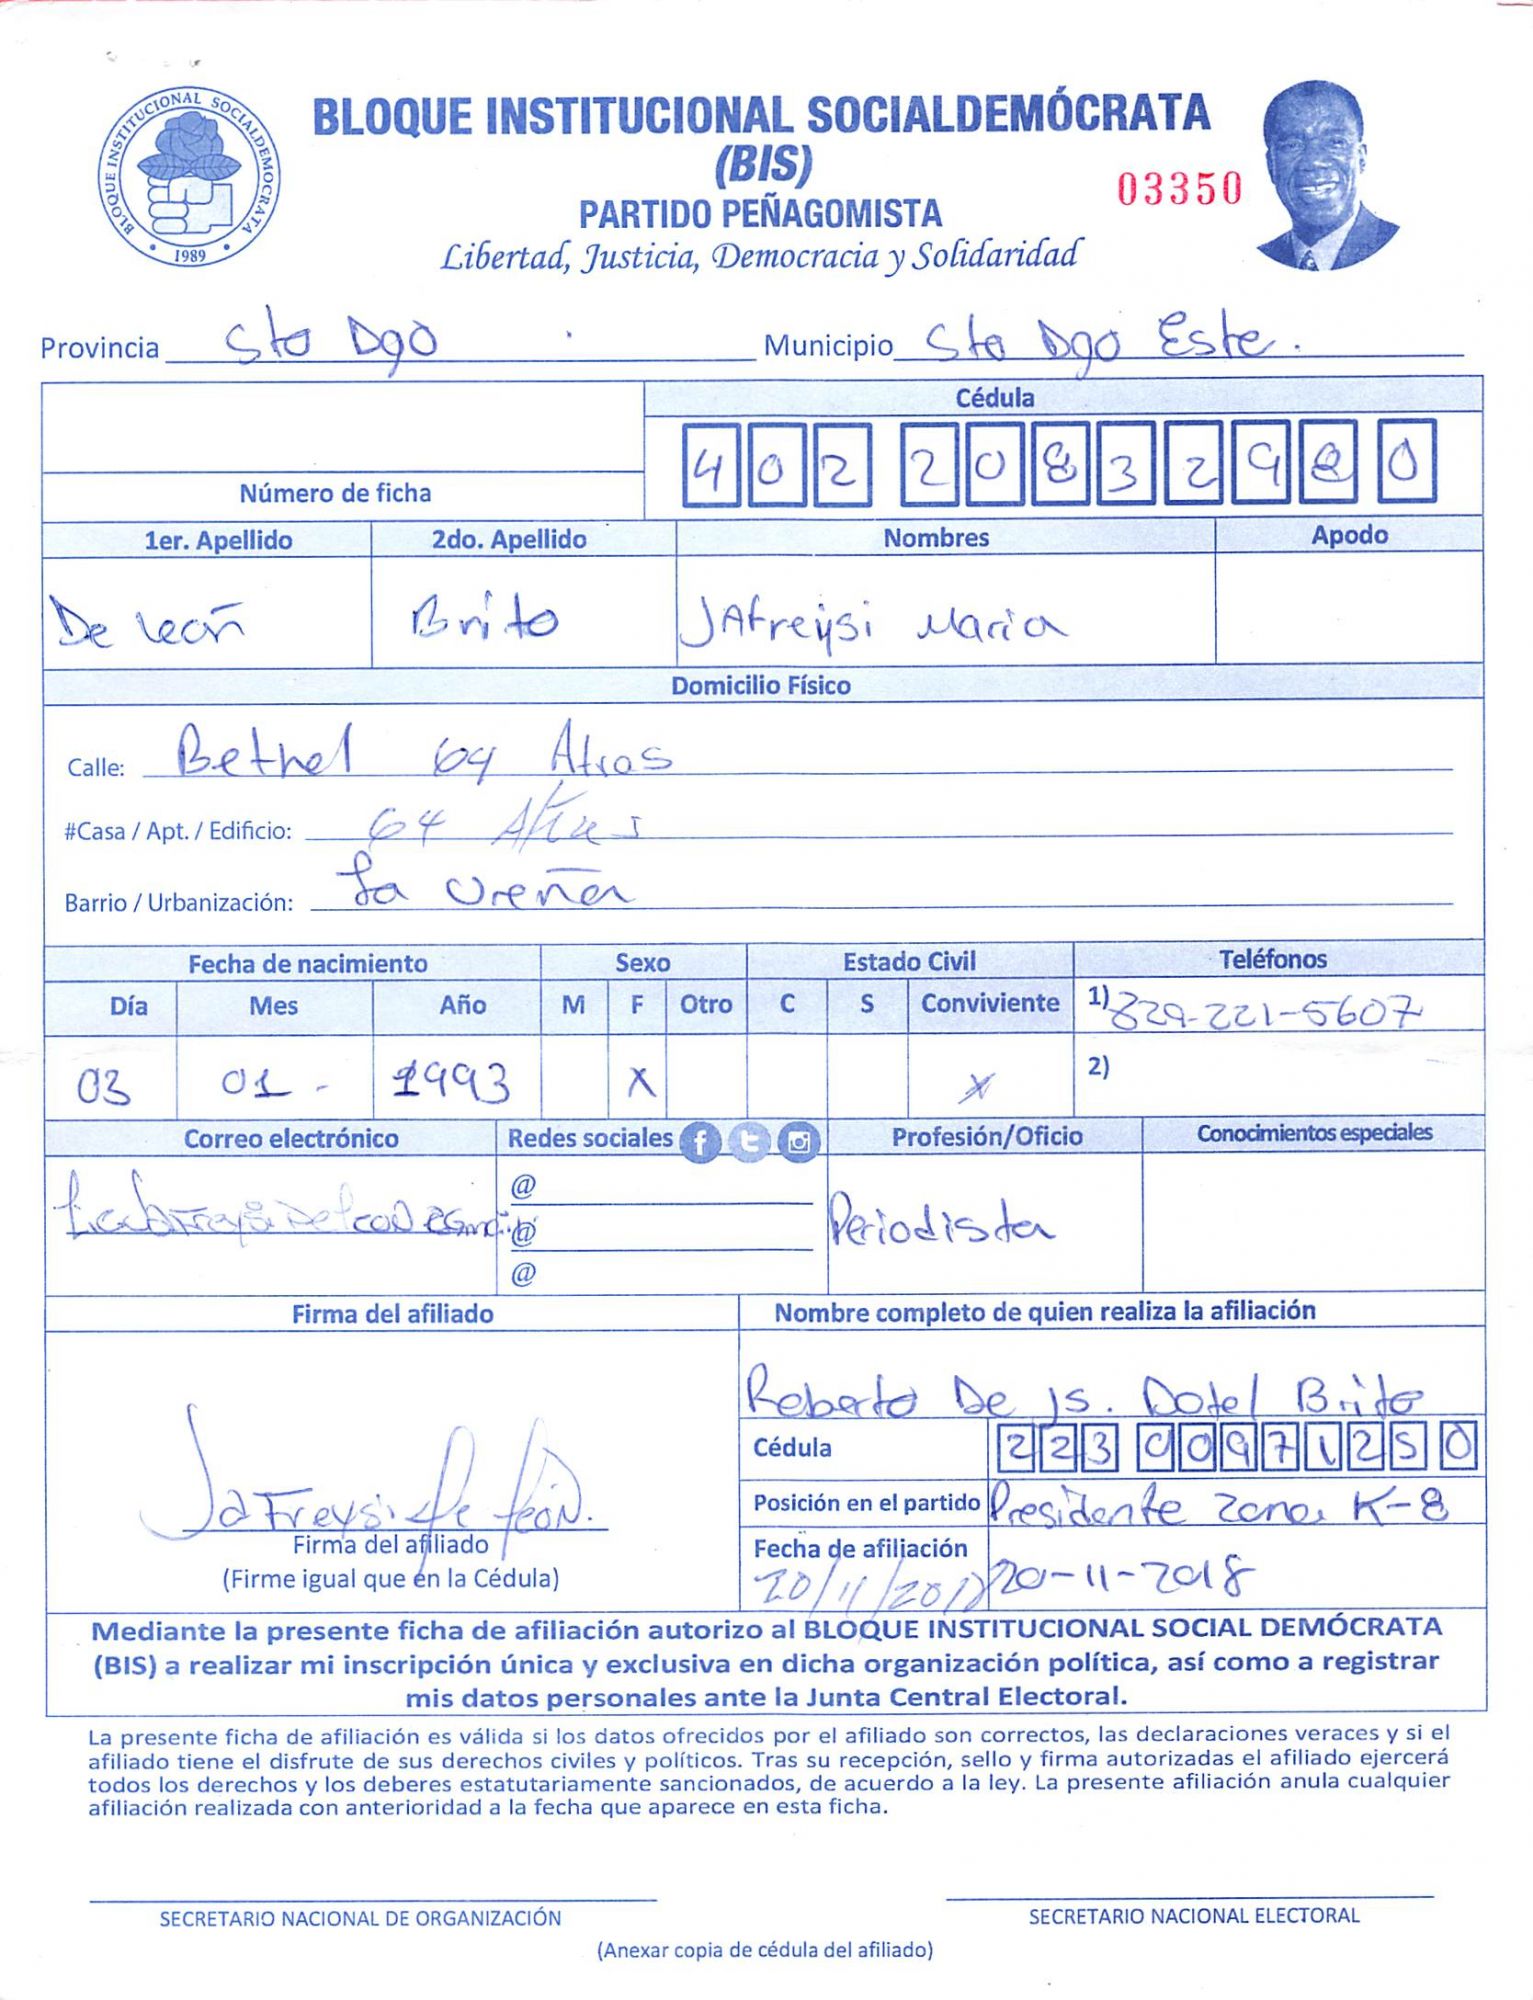 BLOQUE INSTITUCIONAL SOCIALDEMOCRATA
1989
BLOQUE INSTITUCIONAL SOCIALDEMÓCRATA
(BIS)
03350
PARTIDO PEÑAGOMISTA
Libertad, Justicia, Democracia y Solidaridad
Provincia Sto Dgo Municipio Sto Dgo Este.
Cédula
402 2083298 0
Número de ficha
1er. Apellido 2do. Apellido Nombres Apodo
De león Brito JAfreysi Maria
Domicilio Físico
Calle: Bethel 64 Atras
#Casa / Apt. / Edificio: 64 Atras
Barrio / Urbanización: La Ureña
Fecha de nacimiento Sexo Estado Civil Teléfonos
Día Mes Año M F Otro C S Conviviente 1) 829-221-5607
03 01 - 1993 X X 2)
Correo electrónico Redes sociales Profesión/Oficio Conocimientos especiales
@
@ Periodista
@
Firma del afiliado Nombre completo de quien realiza la afiliación
Roberto De Js. Dotel Brito
Cédula 223 0097125 0
JaFreysi De león.
Posición en el partido Presidente Zona K-8
Firma del afiliado
(Firme igual que en la Cédula)
Fecha de afiliación
20/11/2018 20-11-2018
Mediante la presente ficha de afiliación autorizo al BLOQUE INSTITUCIONAL SOCIAL DEMÓCRATA
(BIS) a realizar mi inscripción única y exclusiva en dicha organización política, así como a registrar
mis datos personales ante la Junta Central Electoral.
La presente ficha de afiliación es válida si los datos ofrecidos por el afiliado son correctos, las declaraciones veraces y si el
afiliado tiene el disfrute de sus derechos civiles y políticos. Tras su recepción, sello y firma autorizadas el afiliado ejercerá
todos los derechos y los deberes estatutariamente sancionados, de acuerdo a la ley. La presente afiliación anula cualquier
afiliación realizada con anterioridad a la fecha que aparece en esta ficha.
SECRETARIO NACIONAL DE ORGANIZACIÓN SECRETARIO NACIONAL ELECTORAL
(Anexar copia de cédula del afiliado)